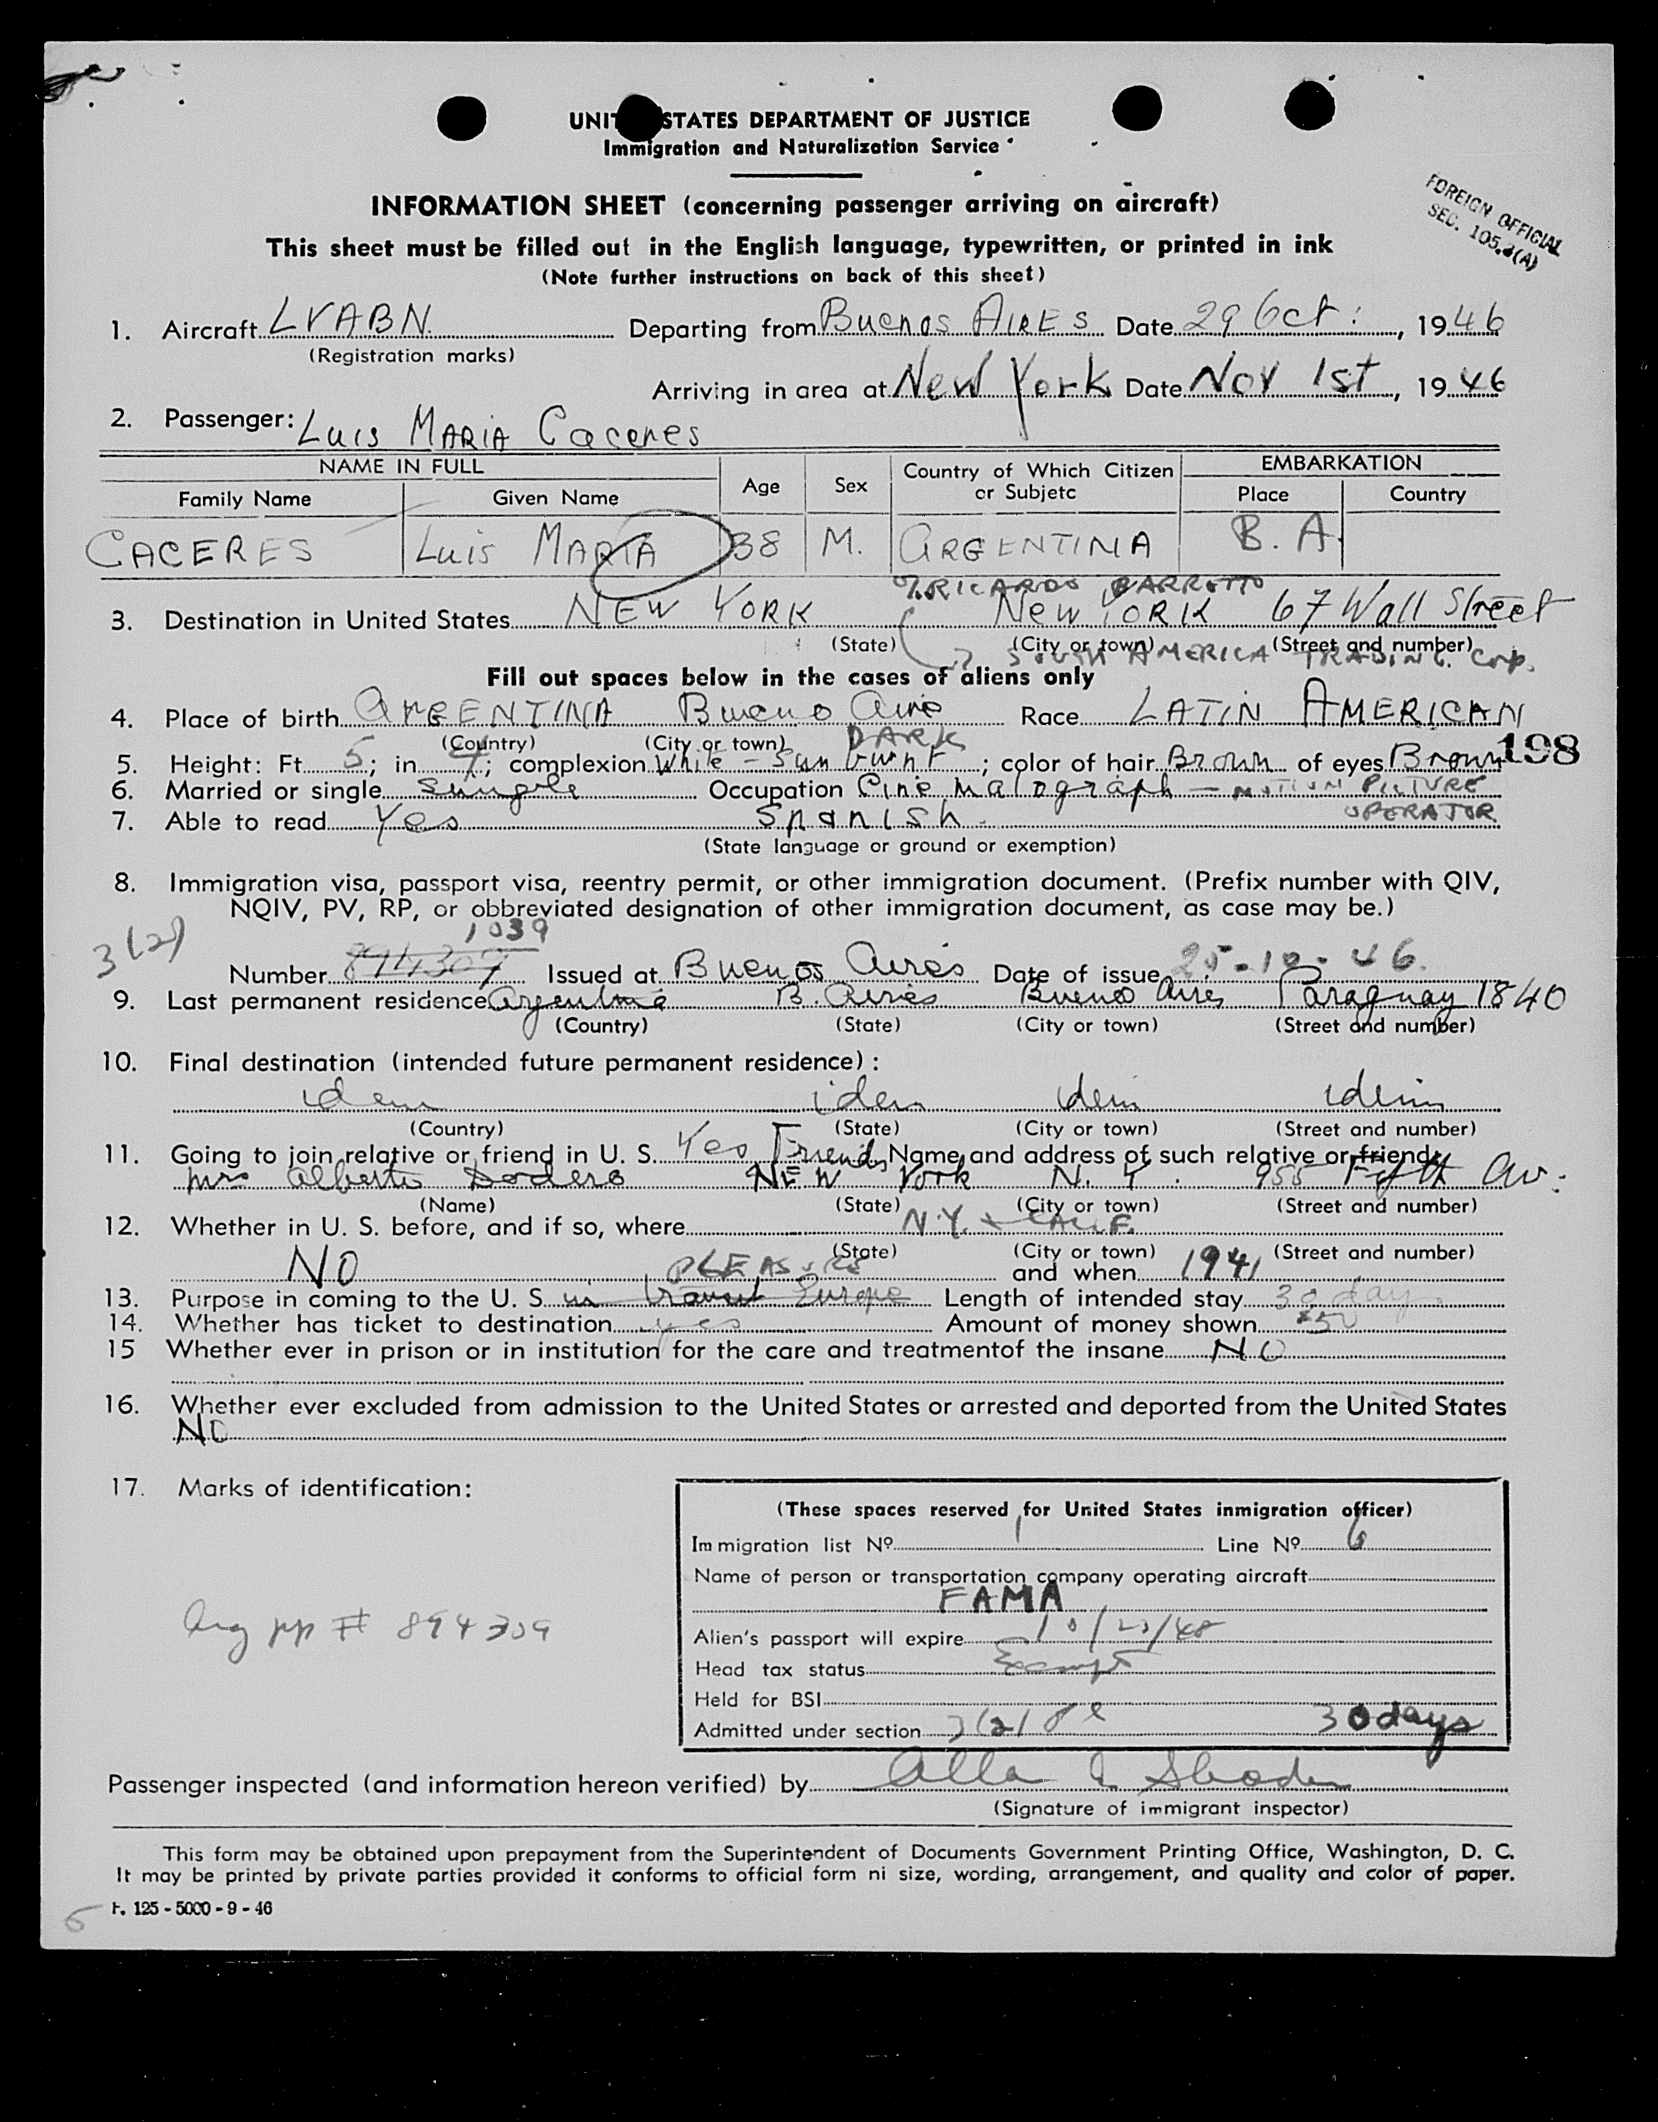 UNITED STATES DEPARTMENT OF JUSTICE
Immigration and Naturalization Service
INFORMATION SHEET (concerning passenger arriving on aircraft)
FOREIGN OFFICIAL
SEC. 105.3(A)
This sheet must be filled out in the English language, typewritten, or printed in ink
(Note further instructions on back of this sheet)
1. Aircraft LVABN. Departing from Buenos AIRES Date 29 Oct. , 1946
(Registration marks)
Arriving in area at New York Date Nov 1st , 1946
2. Passenger: Luis MARIA Caceres
NAME IN FULL Age Sex Country of Which Citizen or Subjetc EMBARKATION
Family Name Given Name Place Country
CACERES Luis MARIA 38 M. ARGENTINA B. A.
% RICARDO BARRETTO
3. Destination in United States NEW YORK New YORK 67 Wall Street
(State) (City or town) (Street and number)
SOUTH AMERICA TRADING Corp.
Fill out spaces below in the cases of aliens only
4. Place of birth ARGENTINA Bueno Aires Race LATIN AMERICAN
(Country) (City or town) DARK
198
5. Height: Ft. 5; in. 4; complexion White - Sun burnt; color of hair Brown of eyes Brown
6. Married or single Single Occupation Cinematograph - MOTION PICTURE
OPERATOR.
7. Able to read Yes Spanish.
(State language or ground or exemption)
8. Immigration visa, passport visa, reentry permit, or other immigration document. (Prefix number with QIV,
NQIV, PV, RP, or obbreviated designation of other immigration document, as case may be.)
3(2) 1039
Number 894309 Issued at Buenos Aires Date of issue 25-10-46.
9. Last permanent residence Argentina B. Aires Bueno Aires Paraguay 1840
(Country) (State) (City or town) (Street and number)
10. Final destination (intended future permanent residence) :
idem idem idem idem
(Country) (State) (City or town) (Street and number)
11. Going to join relative or friend in U. S. Yes Friends Name and address of such relative or friend:
Mrs Alberto Dodero NEW York N. Y. 955 Fifth Av.
(Name) (State) (City or town) (Street and number)
12. Whether in U. S. before, and if so, where N.Y. + CALIF.
(State) (City or town) (Street and number)
NO and when 1941
PLEASURE
13. Purpose in coming to the U. S. in transit Europe Length of intended stay 30 days
14. Whether has ticket to destination yes Amount of money shown $50
15 Whether ever in prison or in institution for the care and treatmentof the insane NO
16. Whether ever excluded from admission to the United States or arrested and deported from the United States
NO
17. Marks of identification:
Arg pp # 894309
(These spaces reserved for United States inmigration officer)
Immigration list Nº 1 Line Nº 6
Name of person or transportation company operating aircraft
FAMA
Alien's passport will expire 10/23/48
Head tax status Exempt
Held for BSI
Admitted under section 3(2) 30 days
Passenger inspected (and information hereon verified) by
(Signature of immigrant inspector)
This form may be obtained upon prepayment from the Superintendent of Documents Government Printing Office, Washington, D. C.
It may be printed by private parties provided it conforms to official form ni size, wording, arrangement, and quality and color of paper.
F. 125 - 5000 - 9 - 46